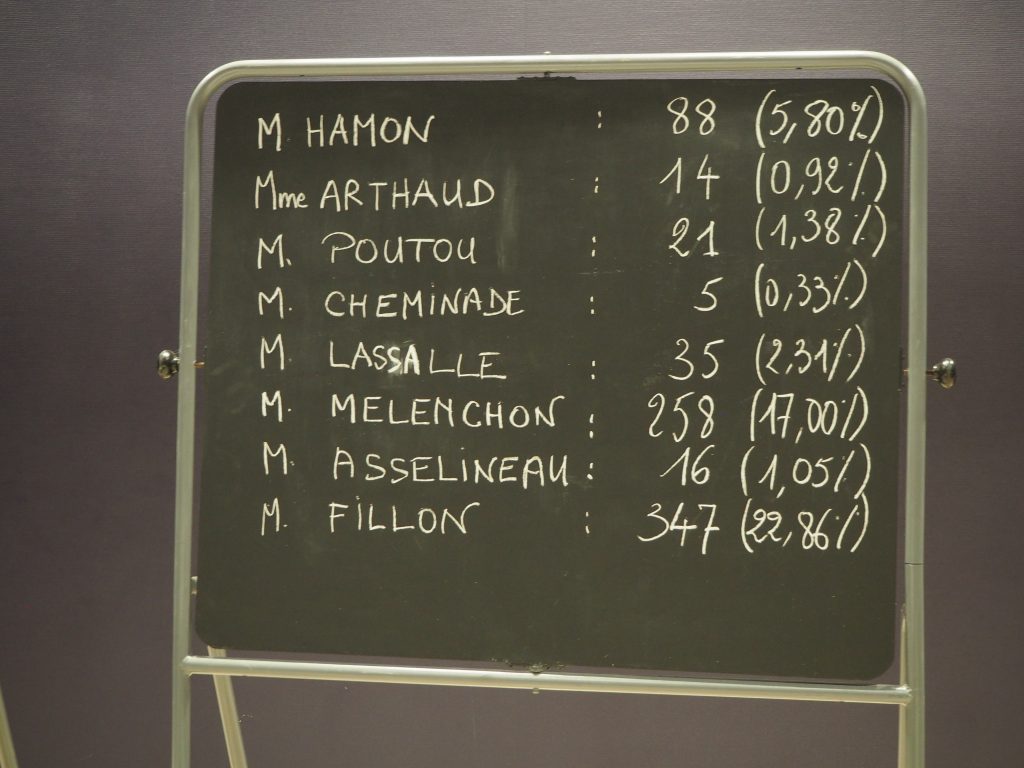 M. HAMON : 88 (5,80%)
Mme ARTHAUD : 14 (0,92%)
M. POUTOU : 21 (1,38%)
M. CHEMINADE : 5 (0,33%)
M. LASSALLE : 35 (2,31%)
M. MELENCHON : 258 (17,00%)
M. ASSELINEAU : 16 (1,05%)
M. FILLON : 347 (22,86%)